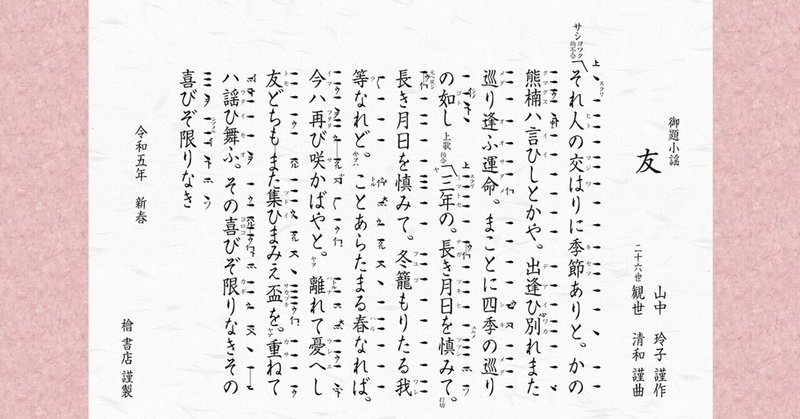 御題小謡
友
山中 玲子 謹作
二十六世 観世 清和 謹曲
サシ ヨワク 拍不合
上
それ人の交はりに季節ありと。かの
熊楠ハ言ひしとかや。出逢ひ別れまた
巡り逢ふ運命。まことに四季の巡り
の如し 上歌 拍合 三年の。長き月日を慎みて。打切
長き月日を慎みて。冬籠もりたる我
等なれど。ことあらたまる春なれば。
今ハ再び咲かばやと。離れて憂へし
友どちもまた集ひまみえ盃を。重ねて
ハ謡ひ舞ふ。その喜びぞ限りなきその
喜びぞ限りなき
令和五年 新春
檜書店 謹製